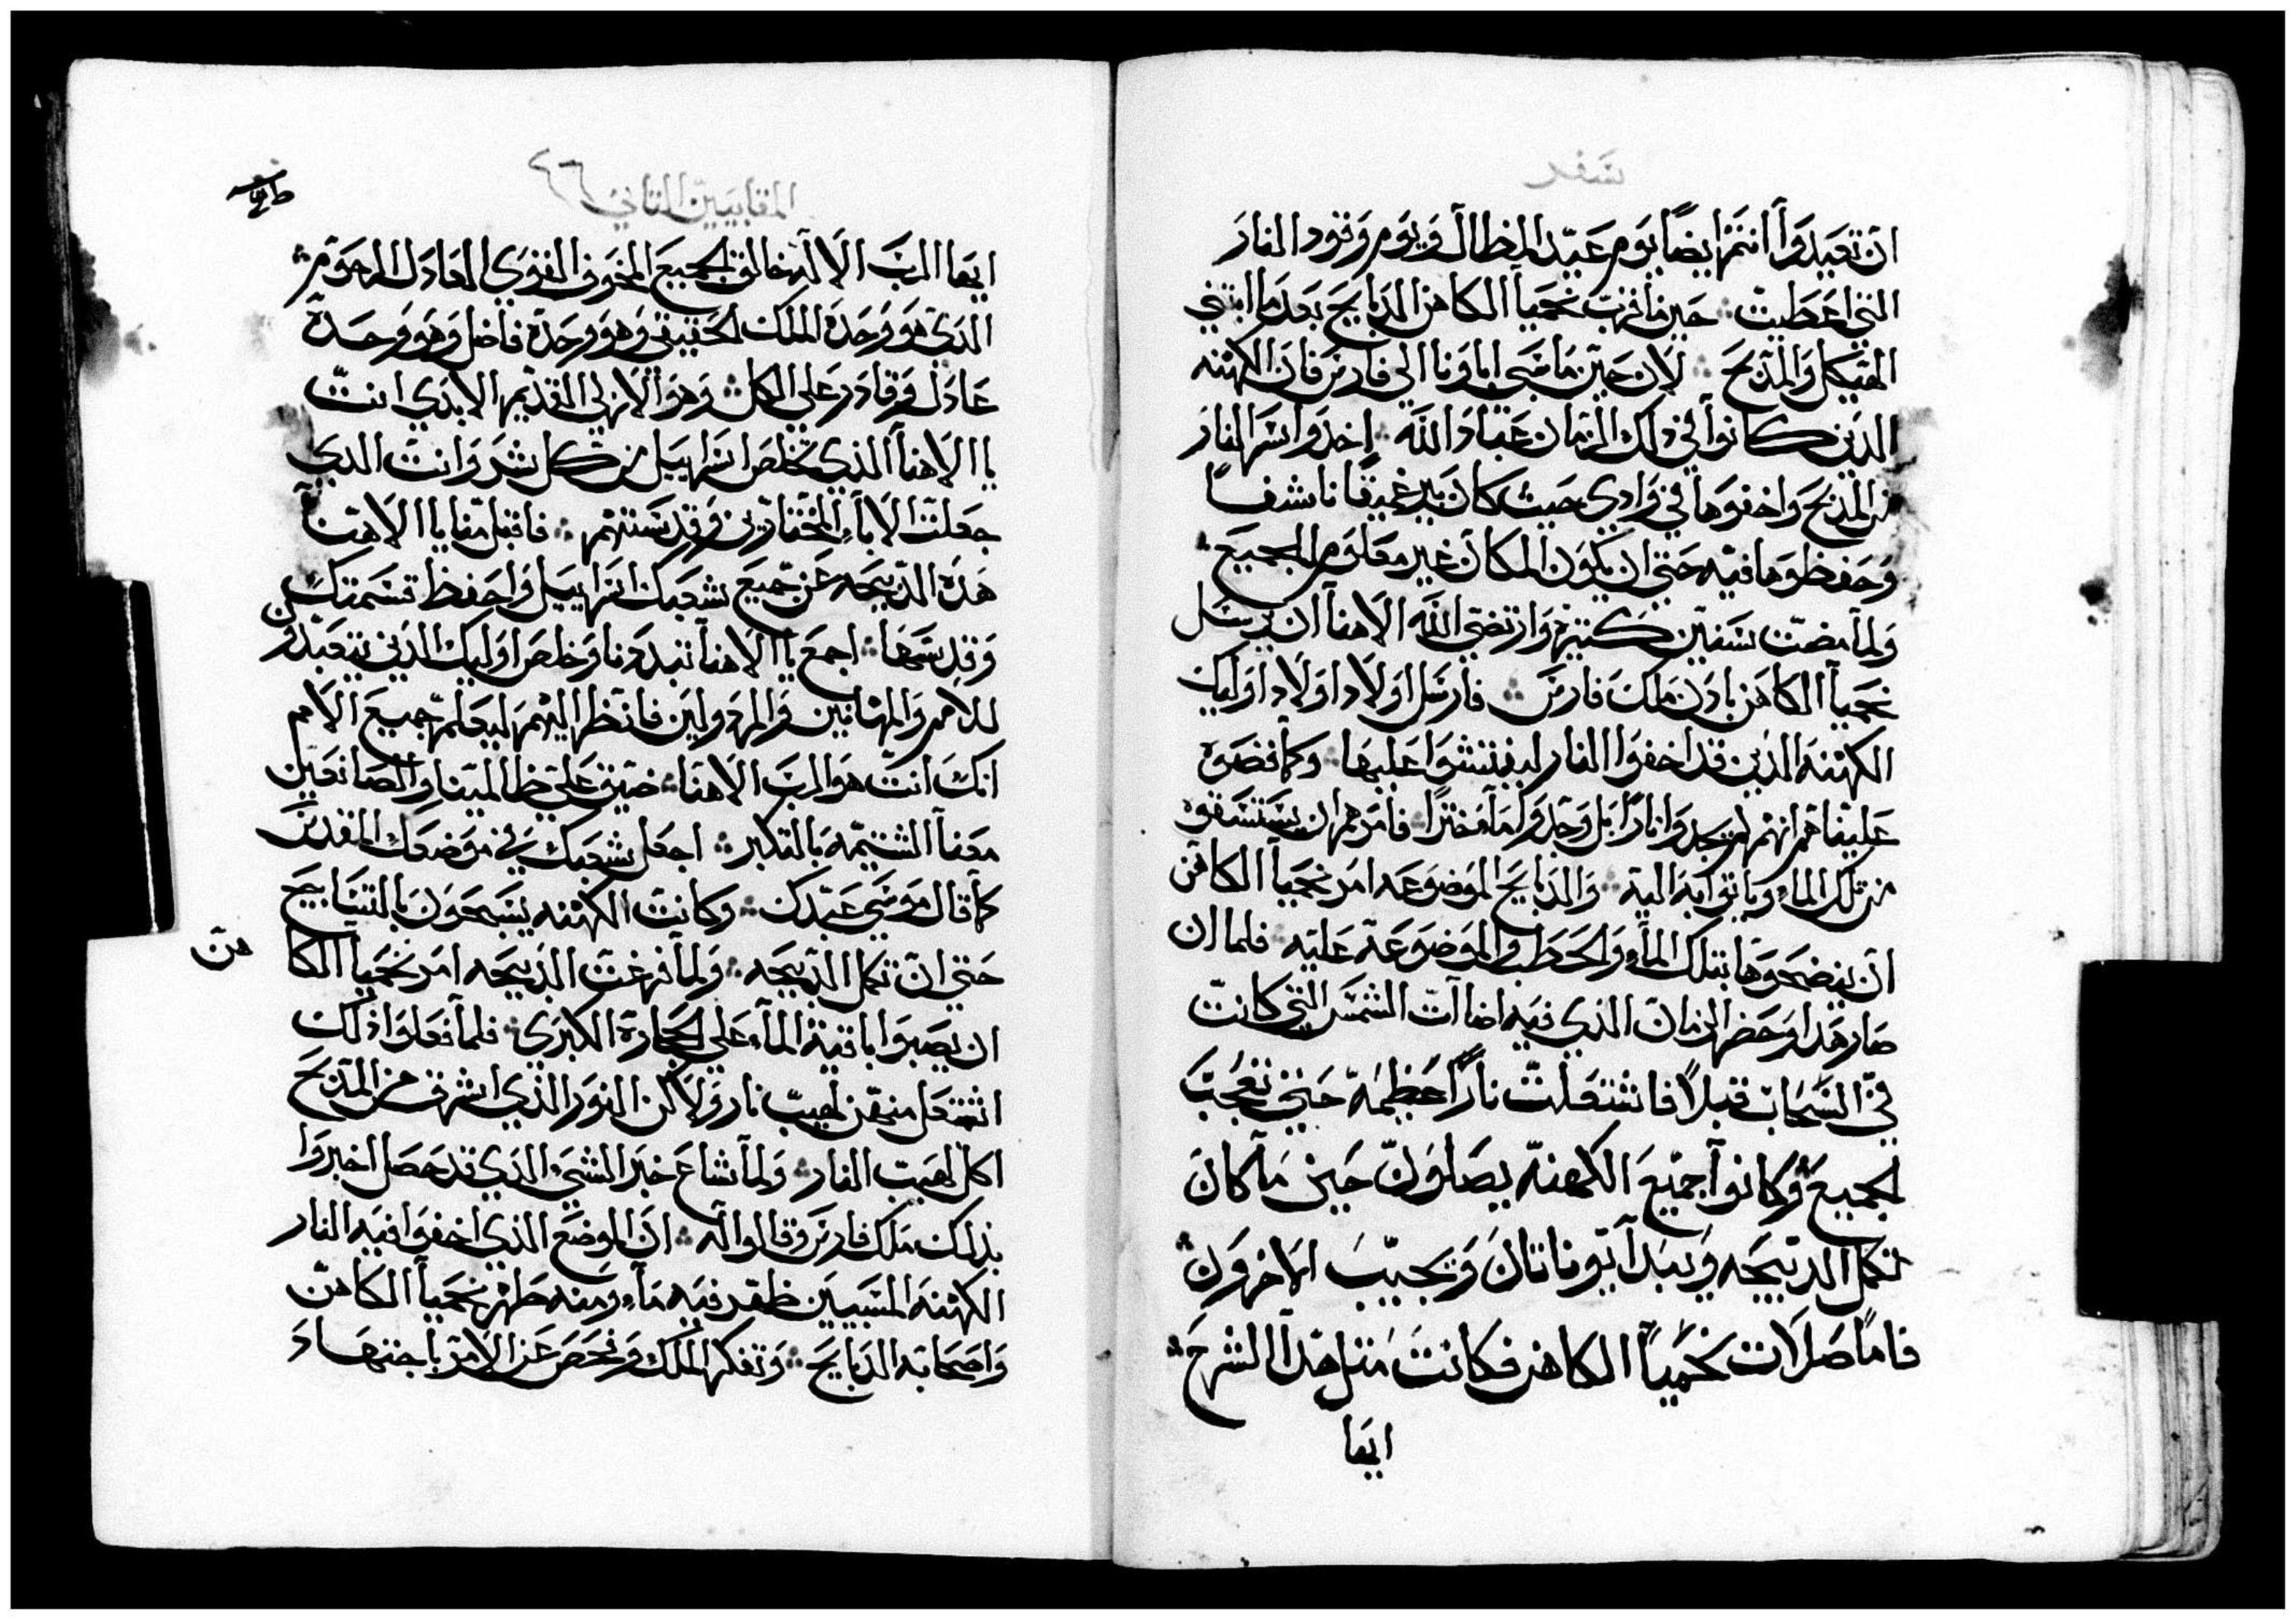 سفر
ان تعيدوا انتم ايضا يوم عيد المظال ويوم وقود النار
التي اعطيت حين ما قرب نحميا الكاهن الدبايح بعد ما ابتني
الهيكل والمدبح لان حين ما سبي اباونا الي فارس فان الكهنه
الدين كانوا في دلك الزمان عباد الله اخدوا سر النار
من المدبح واخفوها في وادي حيث كان بير عميقا ناشفا
وحفظوها فيه حتي ان يكون المكان غير معلوم الجميع
ولما مضت سنين كتيره وارتضي الله الاهنا ان يرسل
نحميا الكاهن بادن ملك فارس فارسل اولاد اولاد اوليك
الكهنه الدين قد اخفوا النار ليفتشوا عليها وكما قصوه
علينا هم انهم لم يجدوا نارا بل وجدوا ماء خترا فامرهم ان يستسقوه
من تلك الماء وياتوا به اليه والدبايح الموضوعه امر نحميا الكاهن
ان ينضحوها بتلك الماء والحطب والموضوعة عليه فلما ان
صار هدا وحضر الزمان الدي فيه اضاات الشمس التي كانت
في السحاب قبلا فاشتعلت نارا عظيمة حتي تعجب
الجميع وكانوا جميع الكهنة يصلون حين ما كان
تكمل الدبيحه ويبدا يوناتان ويجيب الاخرون
فاما صلات نحميا الكاهن فكانت متل هدا الشرح
ايها
المقابيين التاني ٤٦
ايها الرب الاله خالق الجميع المخوف القوي العادل الرحوم
الدي هو وحدة الملك الحقيقي وهو وحدة فاضل وهو وحدة
عادل وقادر علي الكل وهو الازلي القديم الابدي انت
يا الاهنا الدي تخلص اسراييل من كل شر وانت الدي
جعلت الاباء المختارين وقدستهم فاقبل منا يا الاهنا
هده الدبيحه عن جميع شعبك اسراييل واحفظ قسمتك
وقدسها اجمع يا الاهنا تبددنا وخلص اوليك الدين يتعبدون
للامم والمهانين والمردولين فانظر اليهم ليعلم جميع الامم
انك انت هو الرب الاهنا ضيق علي ظالمينا والصانعين
معنا الشتيمه بالتكبر اجعل شعبك في موضعك المقدس
كما قال موسي عبدك وكانت الكهنه يسبحون بالتسابيح
حتي ان تكمل الدبيحه ولما فرغت الدبيحه امر نحميا الكا
هن
ان يصبوا باقية الماء علي الحجارة الكبري فلما فعلوا دلك
اشتعل منهن لهيب نار ولاكن النور الدي اشرق من المدبح
اكل لهيب النار ولما شاع خبر الشي الدي قد حصل اخبروا
بدلك ملك فارس وقالوا له ان الموضع الدي اخفوا فيه النار
الكهنه المسبيين ظهر فيه ماء ومنه طهر نحميا الكاهن
واصحابه الدبايح وتفكر الملك وفحص عن الامر باجتهاد